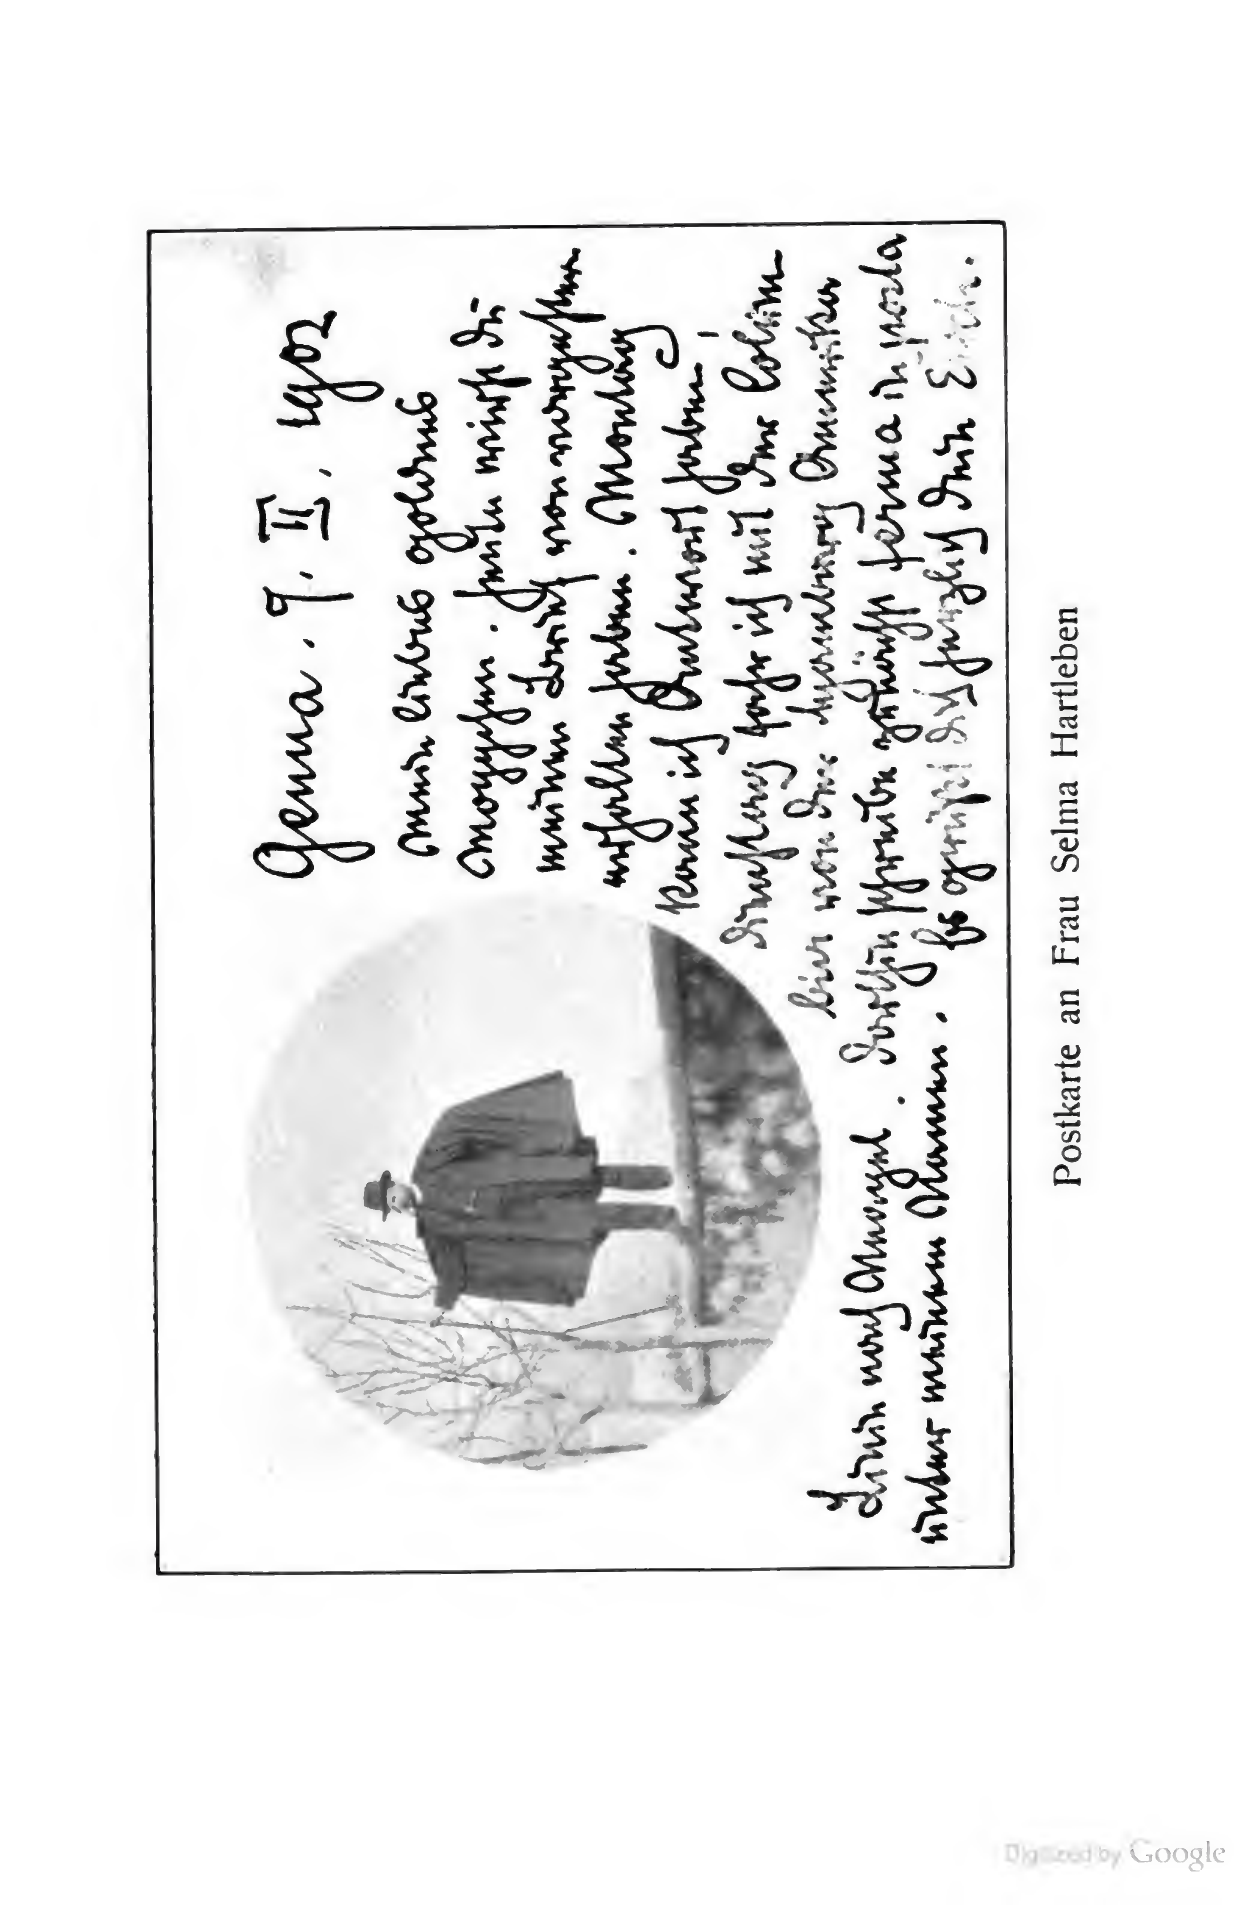 Genua. 9. II. 1902
mein liebes goldnes
Moppchen. heute wirst du
meinen Brief von vorgestern
erhalten haben. Montag
kann ich Antwort haben!
Dienstag fahre ich mit der Colum-
bien von der Hamburg Amerika
Linie nach Neapel. Dorthin schreibe zunächst ferma in posta
unter meinem Namen. Es grüßt dich herzlich dein Erich.
Postkarte an Frau Selma Hartleben
Digitized by Google